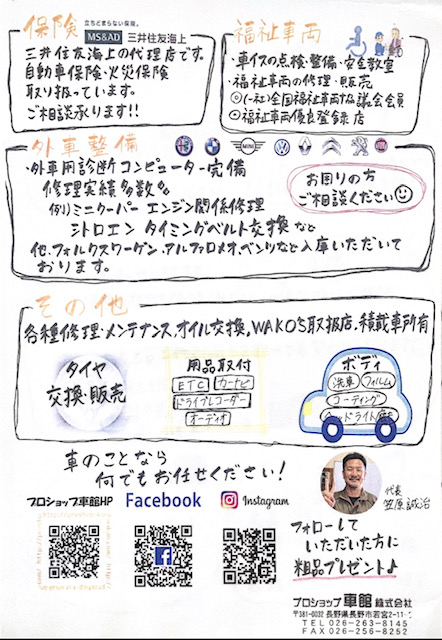 保険
立ちどまらない保険。
MS&AD 三井住友海上
三井住友海上の代理店です。
自動車保険・火災保険
取り扱っています。
ご相談承ります!!
福祉車両
・車イスの点検・整備・安全教室
・福祉車両の修理・販売
◎(一社)全国福祉車両協議会会員
◎福祉車両優良登録店
外車整備
MINI
・外車用診断コンピューター完備
修理実績多数
例)ミニクーパー エンジン関係修理
シトロエン タイミングベルト交換など
他、フォルクスワーゲン、アルファロメオ、ベンツなど入庫いただいて
おります。
お困りの方
ご相談ください
その他
各種修理・メンテナンス、オイル交換、WAKO'S取扱店、積載車所有
タイヤ
交換・販売
用品取付
ETC カーナビ
ドライブレコーダー
オーディオ
ボディ
洗車 フィルム
コーティング
ヘッドライト
車のことなら
何でもお任せください!
代表
笠原誠治
プロショップ車館HP Facebook Instagram
フォローして
いただいた方に
粗品プレゼント♪
プロショップ 車館 株式会社
〒381-0032 長野県長野市若宮2-11-
TEL 026-263-8145
FAX 026-256-8252